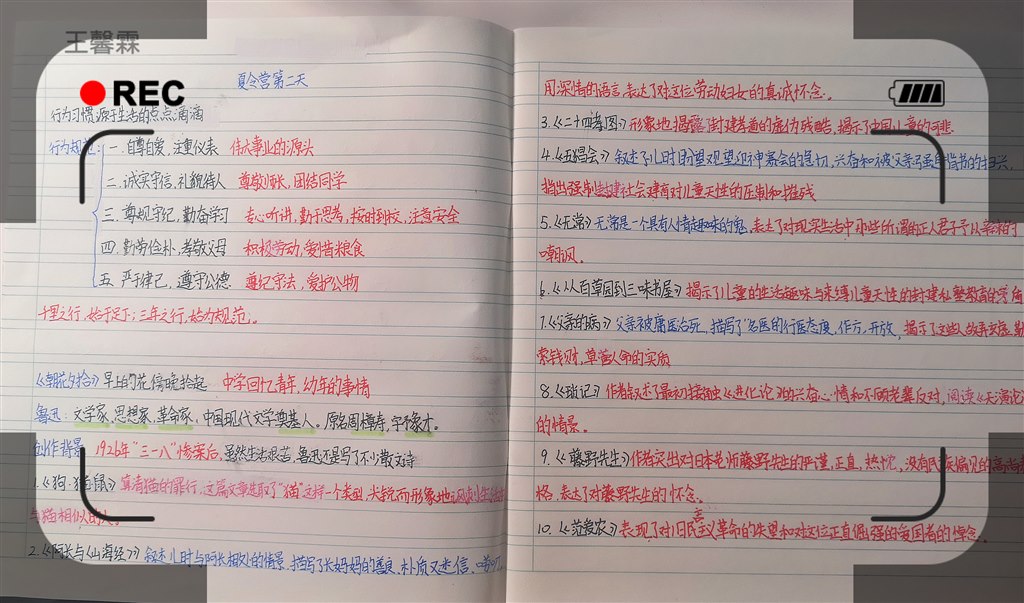 王馨霖
REC
夏令营第二天
行为习惯,源于生活的点点滴滴
行为规范:一.自尊自爱,注重仪表 伟大事业的源头
二.诚实守信,礼貌待人 尊敬师长,团结同学
三.尊规守纪,勤奋学习 专心听讲,勤于思考,按时到校,注意安全
四.勤劳俭朴,孝敬父母 积极劳动,爱惜粮食
五.严于律己,遵守公德 遵纪守法,爱护公物
千里之行,始于足下;三年之行,始为规范。
《朝花夕拾》早上的花傍晚拾起 中学回忆青年,幼年的事情
鲁迅:文学家,思想家,革命家,中国现代文学奠基人。原名周樟寿,字豫才。
创作背景 1926年"三一八"惨案后,虽然生活艰苦,鲁迅还是写了不少散文诗
1.《狗·猫·鼠》 的罪行,这篇文章选取了"猫"这样一个类型,尖锐而形象地讽刺
与猫相似的人。
2.《阿长与<山海经>》叙述儿时与阿长相处的情景,描写了长妈妈的善良、朴质又迷信、
用深情的语言,表达了对这位劳动妇女的真诚怀念。
3.《二十四孝图》形象地揭露封建孝道的虚伪残酷,揭示了中国儿童的可悲
4.《五猖会》叙述了儿时盼望观望迎神赛会的急切,兴奋和被父亲 背书的扫兴,
指出强制 社会 对儿童天性的压制和摧残
5.《无常》无常是一个具有人情趣味的鬼,表达了对现实生活中那些所谓的正人君子予以辛辣的
嘲讽。
6.《从百草园到三味书屋》揭示了儿童的生活趣味与束缚儿童天性的封建私塾教育的
7.《父亲的病》父亲被庸医治死,描写了"名医的行医态度、作方、开放,揭示了这些人故弄玄虚,
索钱财,草菅人命的实质
8.《琐记》作者叙述了最初接触《进化论》的兴奋心情和不顾老辈反对,阅读《天演论》
的情景。
9.《藤野先生》作者突出对日本老师藤野先生的严谨,正直,热忱,没有民族偏见的高尚
格,表达了对藤野先生的怀念。
10.《范爱农》表现了对旧民主义革命的失望和对这位正直倔强的爱国者的悼念